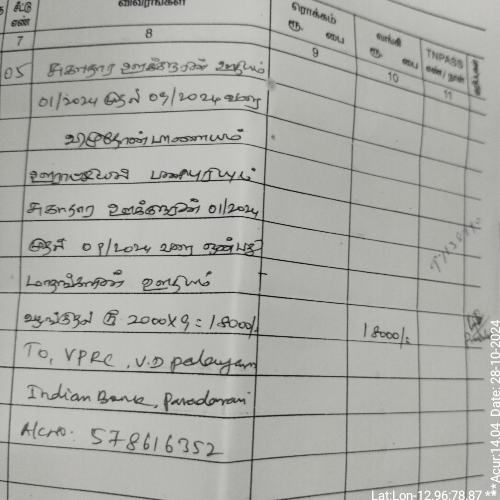 சீட்டு எண் விவரங்கள் ரொக்கம் ரூ. பை வங்கி ரூ. பை TNPASS எண்/நாள்
7 8 9 10 11
05 சுகாதார ஊக்குநரின் ஊதியம்
01/2024 முதல் 09/2024 வரை
விழுதோன்பாளையம்
ஊராட்சியில் பணிபுரியும்
சுகாதார ஊக்குநரின் 01/2024
முதல் 09/2024 வரை ஒன்பது
மாதங்களின் ஊதியம்
வழங்குதல் ரூ 2000X9 = 18000/- 18000/-
To, VPRC, V.D palayam
Indian Bank,
A/C no: 578616352
Lat:Lon-12.96:78.87 ** Acur:14.04 Date: 28-10-2024